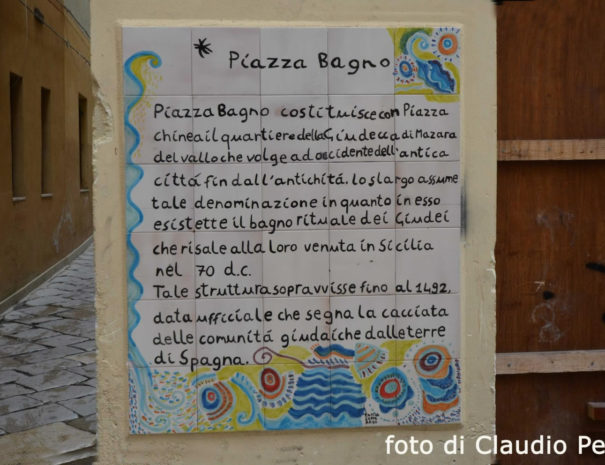 * Piazza Bagno
Piazza Bagno costituisce con Piazza
chinea il quartiere della Giudecca di Mazara
del vallo che volge ad occidente dell'antica
cittá fin dall'antichitá. lo slargo assume
tale denominazione in quanto in esso
esistette il bagno rituale dei Giudei
che risale alla loro venuta in Sicilia
nel 70 d.c.
Tale struttura sopravvisse fino al 1492,
data ufficiale che segna la cacciata
delle comunitá giudaiche dalle terre
di Spagna.
foto di Claudio Pe